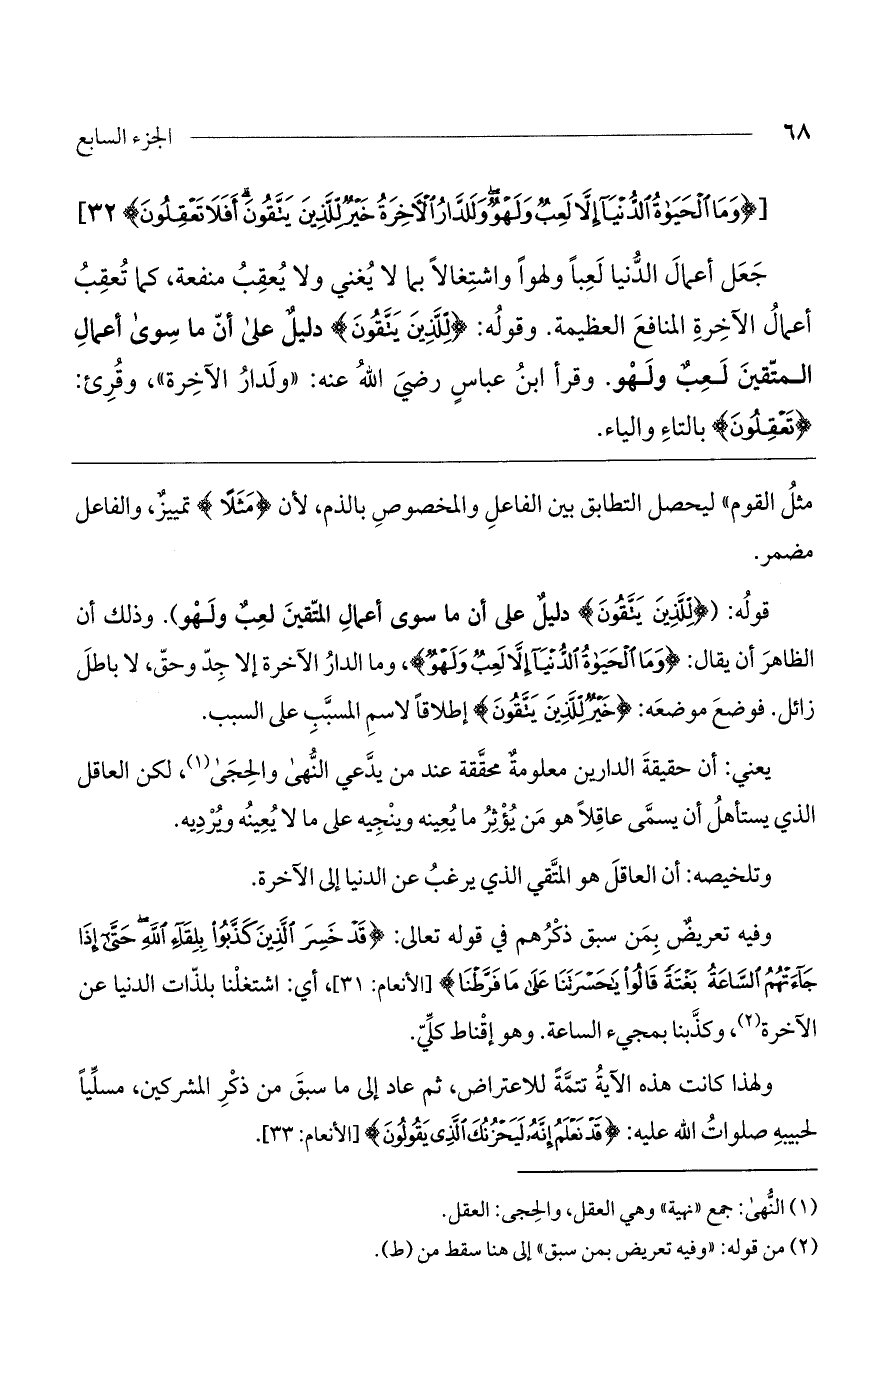 ٦٨ الجزء السابع
[﴿وَمَا ٱلْحَيَوٰةُ ٱلدُّنْيَآ إِلَّا لَعِبٌ وَلَهْوٌۖ وَلَلدَّارُ ٱلْأَخِرَةُ خَيْرٌ لِّلَّذِينَ يَتَّقُونَۗ أَفَلَا تَعْقِلُونَ﴾ ٣٢]
جَعَل أعمالَ الدُّنيا لَعِباً ولهواً واشتِغالاً بما لا يُغني ولا يُعقِبُ منفعة، كما تُعقِبُ
أعمالُ الآخِرةِ المنافعَ العظيمة. وقولُه: ﴿لِّلَّذِينَ يَتَّقُونَ﴾ دليلٌ علىٰ أنّ ما سِوىٰ أعمالِ
الـمتّقينَ لَـعِبٌ ولَـهْو. وقرأ ابنُ عباسٍ رضيَ اللهُ عنه: «ولَدارُ الآخِرة»، وقُرِئ:
﴿تَعْقِلُونَ﴾ بالتاءِ والياء.
مثلُ القوم» ليحصل التطابق بين الفاعلِ والمخصوصِ بالذم، لأن ﴿مَثَلًا﴾ تمييزٌ، والفاعل
مضمر.
قولُه: (﴿لِلَّذِينَ يَتَّقُونَ﴾ دليلٌ على أن ما سوى أعمالِ المتّقينَ لعِبٌ ولَـهْو). وذلك أن
الظاهرَ أن يقال: ﴿وَمَا ٱلْحَيَوٰةُ ٱلدُّنْيَآ إِلَّا لَعِبٌ وَلَهْوٌ﴾، وما الدارُ الآخرة إلا جِدّ وحقّ، لا باطلَ
زائل. فوضعَ موضعَه: ﴿خَيْرٌ لِّلَّذِينَ يَتَّقُونَ﴾ إطلاقاً لاسمِ المسبَّبِ على السبب.
يعني: أن حقيقةَ الدارين معلومةٌ محقَّقة عند من يدَّعي النُّهىٰ والحِجَىٰ(١)، لكن العاقل
الذي يستأهلُ أن يسمَّى عاقِلاً هو مَن يُؤْثِرُ ما يُعِينه وينْجِيه على ما لا يُعِينُه ويُرْدِيه.
وتلخيصه: أن العاقلَ هو المتَّقي الذي يرغبُ عن الدنيا إلى الآخرة.
وفيه تعريضٌ بِمَن سبق ذكْرُهم في قوله تعالى: ﴿قَدْ خَسِرَ ٱلَّذِينَ كَذَّبُوا۟ بِلِقَآءِ ٱللَّهِۖ حَتَّىٰٓ إِذَا
جَآءَتْهُمُ ٱلسَّاعَةُ بَغْتَةً قَالُوا۟ يَٰحَسْرَتَنَا عَلَىٰ مَا فَرَّطْنَا﴾ [الأنعام: ٣١]، أي: اشتغلْنا بلذّات الدنيا عن
الآخرة(٢)، وكذَّبنا بمجيء الساعة. وهو إقْناط كلِّيّ.
ولهذا كانت هذه الآيةُ تتمَّةً للاعتراض، ثم عاد إلى ما سبقَ من ذكْرِ المشركين، مسلِّياً
لحبيبهِ صلواتُ الله عليه: ﴿قَدْ نَعْلَمُ إِنَّهُۥ لَيَحْزُنُكَ ٱلَّذِى يَقُولُونَ﴾ [الأنعام: ٣٣].
(١) النُّهىٰ: جمع «نهية» وهي العقل، والحِجى: العقل.
(٢) من قوله: «وفيه تعريض بمن سبق» إلى هنا سقط من (ط).